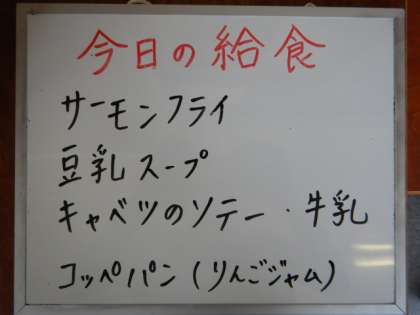 今日の給食
サーモンフライ
豆乳スープ
キャベツのソテー・牛乳
コッペパン(りんごジャム)